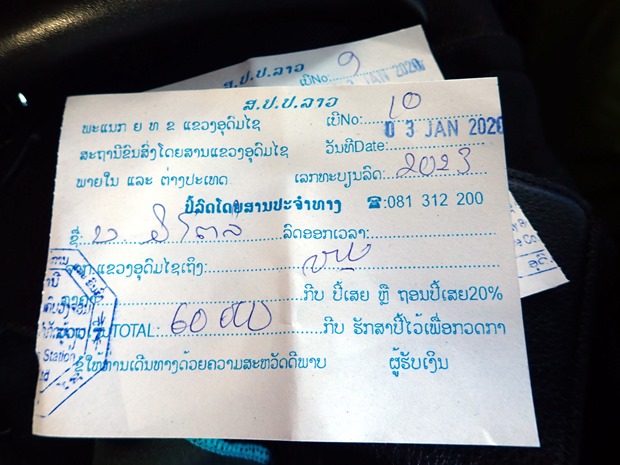 ສ.ປ.ປ.ລາວ
ເບີNo: 9
JAN 2020
ສ.ປ.ປ.ລາວ
ພະແນກ ຍ ທ ຂ ແຂວງອຸດົມໄຊ
ເບີNo: 10
ສະຖານີຂົນສົ່ງໂດຍສານແຂວງອຸດົມໄຊ
ວັນທີDate: 03 JAN 2020
ພາຍໃນ ແລະ ຕ່າງປະເທດ
ເລກທະບຽນລົດ: 2023
ປີ້ລົດໂດຍສານປະຈຳທາງ ☎:081 312 200
ຊື່ ລົດອອກເວລາ:
ຈາກ ແຂວງອຸດົມໄຊເຖິງ:
ກີບ ປີ້ເສຍ ຫຼື ຖອນປີ້ເສຍ20%
TOTAL: 60000 ກີບ ຮັກສາປີ້ໄວ້ເພື່ອກວດກາ
Station
ຂໍໃຫ້ການເດີນທາງດ້ວຍຄວາມສະຫວັດດີພາບ ຜູ້ຮັບເງິນ